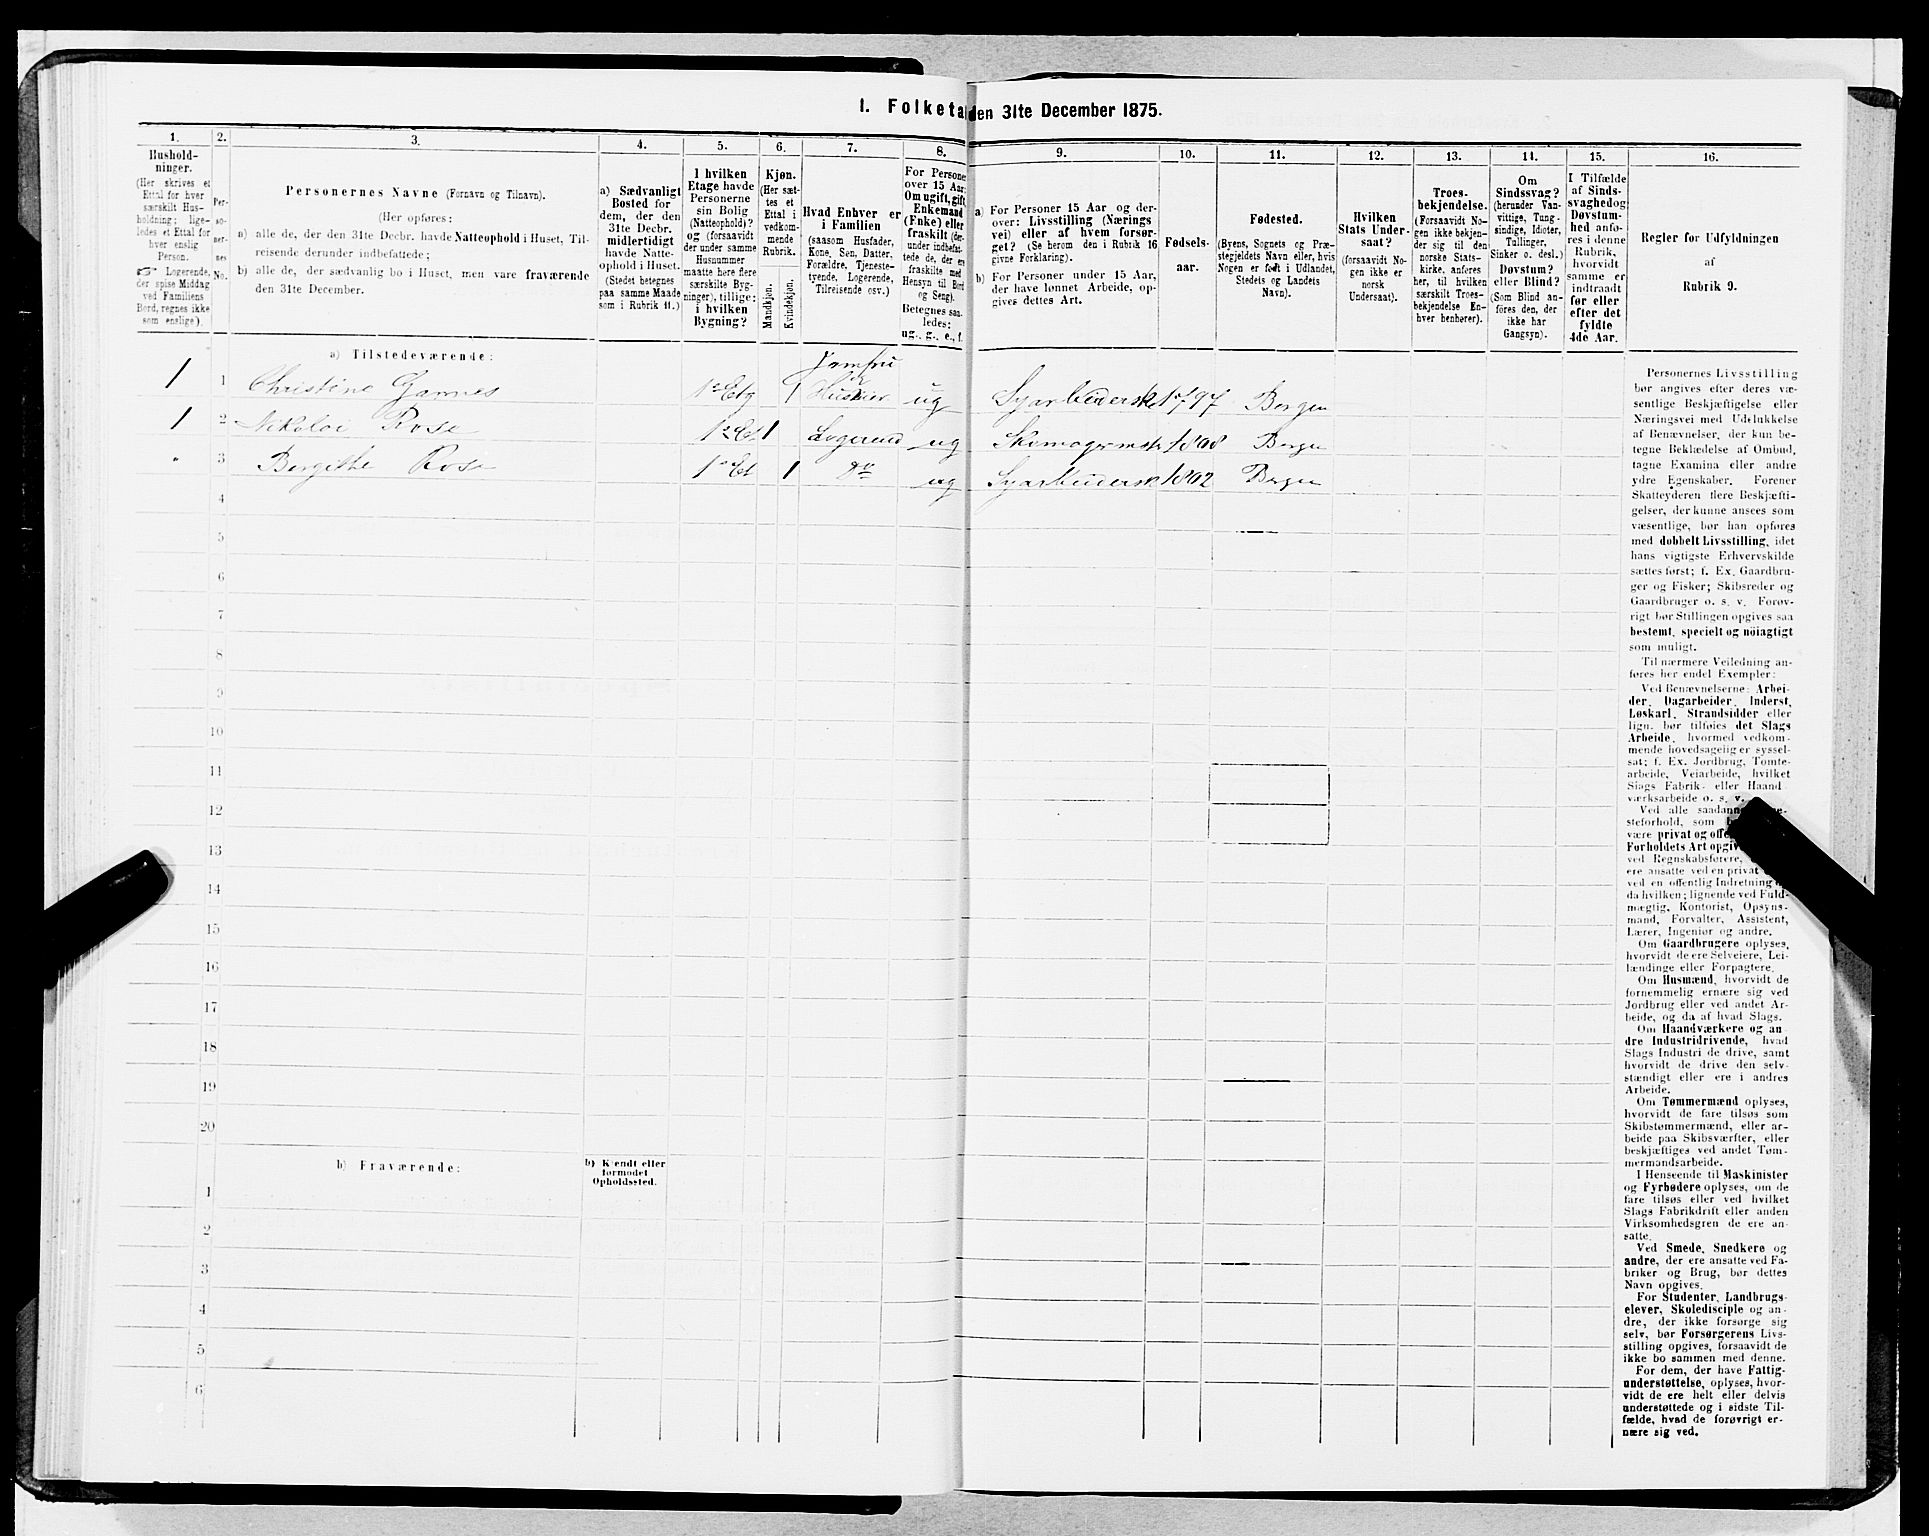 I. Folketa den 31te December 1875.
1.
2.
3.
4.
5.
6.
7.
8.
9.
10.
11.
12.
13.
14.
15.
16.
Hushold-
ninger.
(Her skrives et
Ettal for hver
særskilt Hus-
holdning; lige-
ledes et Ettal for
hver enslig
Person.
☞ Logerende,
der spise Middag
ved Familiens
Bord, regnes ikke
som enslige).
Per-
so-
ner-
nes
No.
Personernes Navne (Fornavn og Tilnavn).
(Her opføres:
a) alle de, der den 31te Decbr. havde Natteophold i Huset, Til-
reisende derunder indbefattede;
b) alle de, der sædvanlig bo i Huset, men vare fraværende
den 31te December.
a) Sædvanligt
Bosted for
dem, der den
31te Decbr.
midlertidigt
havde Natte-
ophold i Huset.
(Stedet betegnes
paa samme Maade
som i Rubrik 11.)
I hvilken
Etage havde
Personerne
sin Bolig
(Natteophold)?
og (forsaavidt
der under samme
Husnummer
maatte høre flere
særskilte Byg-
ninger), tillige:
i hvilken
Bygning?
Kjøn.
(Her sæt-
tes et
Ettal i
vedkom-
mende
Rubrik.
Mandkjøn.
Kvindekjøn.
Hvad Enhver er
i Familien
(saasom Husfader,
Kone, Søn, Datter,
Forældre, Tjeneste-
tyende, Logerende,
Tilreisende osv.)
For Persone
over 15 Aar:
Om ugift, gift,
Enkemand
(Enke) eller
fraskilt (der-
under indbefat-
tede de, der ere
fraskilte med
Hensyn til Bord
og Seng).
Betegnes saa-
ledes:
ug., g., e., f.
a) For Personer 15 Aar og der-
over: Livsstilling (Nærings
vei) eller af hvem forsør-
get? (Se herom den i Rubrik 16
givne Forklaring).
b) For Personer under 15 Aar,
der have lønnet Arbeide, op-
gives dettes Art.
Fødsels-
aar.
Fødested.
(Byens, Sognets og Præ-
stegjeldets Navn eller, hvis
Nogen er født i Udlandet,
Stedets og Landets
Navn).
Hvilken
Stats Under-
saat?
(forsaavidt No-
gen ikke er
norsk
Undersaat).
Troes-
bekjendelse.
(Forsaavidt No-
gen ikke bekjen-
der sig til den
norske Stats-
kirke, anføres
her, til hvilken
særskilt Troes-
bekjendelse En-
hver henhører).
Om
Sindssvag?
(herunder Van-
vittige, Tung-
sindige, Idioter,
Tullinger,
Sinker o. desl.)
Døvstum?
eller Blind?
(Som Blind an-
føres den, der
ikke har
Gangsyn).
I Tilfælde
af Sinds-
svaghed og
Døvstum-
hed anfø-
res i denne
Rubrik,
hvorvidt
samme er
indtraadt
før eller
efter det
fyldte
4de Aar.
Regler for Udfyldningen
af
Rubrik 9.
a) Tilstedeværende:
Jomfru
1 1 Christine Gamnes 1e Etg 1 ug Syarbeiderske 1797 Bergen
1 2 Nikolai Rose 1e Et 1 Logerend ug Skomagermstr 1808 Bergen
" 3 Bergithe Rose 1e Et 1 do ug Syarbeidersk 1802 Bergen
4
5
6
7
8
9
10
11
12
13
14
15
16
17
18
19
20
b) Fraværende:
b) Kjendt eller
formodet
Opholdssted.
1
2
3
4
5
6
Personernes Livsstilling
bør angives efter deres væ-
sentlige Beskjæftigelse eller
Næringsvei med Udelukkelse
af Benævnelser, der kun be-
tegne Beklædelse af Ombud,
tagne Examina eller andre
ydre Egenskaber. Forener
Skatteyderen flere Beskjæfti-
gelser, der kunne ansees som
væsentlige, bør han opføres
med dobbelt Livsstilling, idet
hans vigtigste Erhvervskilde
sættes først; f. Ex. Gaardbru-
ger og Fisker; Skibsreder og
Gaardbruger o. s. v. Forøv-
rigt bør Stillingen opgives saa
bestemt, specielt og nöiagtigt
som muligt.
Til nærmere Veiledning an-
føres her endel Exempler:
Ved Benævnelserne: Arbei-
der, Dagarbeider, Inderst,
Løskarl, Strandsidder eller
lign. bør tilføies det Slags
Arbeide, hvormed vedkom-
mende hovedsagelig er syssel-
sat; f. Ex. Jordbrug, Tomte-
arbeide, Veiarbeide, hvilket
Slags Fabrik- eller Haand
værksarbeide o. s. v.
Ved alle saadanne
steforhold, som
være privat og
Forholdets Art
ved Regnskabsførere,
ere ansatte ved en privat
ved en offentlig Indretning
da hvilken; lignende ved Fuld-
mægtig, Kontorist, Opsyns-
mand, Forvalter, Assistent,
Lærer, Ingeniør og andre.
Om Gaardbrugere oplyses,
hvorvidt de ere Selveiere, Lei-
lændinge eller Forpagtere.
Om Husmænd, hvorvidt de
fornemmelig ernære sig ved
Jordbrug eller ved andet Ar-
beide, og da af hvad Slags.
Om Haandværkere og an
dre Industridrivende, hvad
Slags Industri de drive, samt
hvorvidt de drive den selv-
stændigt eller ere i andres
Arbeide.
Om Tømmermænd oplyses,
hvorvidt de fare tilsøs som
Skibstømmermænd, eller ar-
beide paa Skibsværfter, eller
beskjæftiges ved andet Tøm-
mermandsarbeide.
I Henseende til Maskinister
og Fyrbødere oplyses, om de
fare tilsøs eller ved hvilket
Slags Fabrikdrift eller anden
Virksomhedsgren de ere an-
satte.
Ved Smede, Snedkere og
andre, der ere ansatte ved Fa-
briker og Brug, bør dettes
Navn opgives.
For Studenter, Landbrugs-
elever, Skoledisciple og an-
dre, der ikke forsørge sig
selv, bør Forsørgerens Livs-
stilling opgives, forsaavidt de
ikke bo sammen med denne.
For dem, der have Fattig-
understøttelse, oplyses, hvor-
vidt de ere helt eller delvis
understøttede og i sidste Til-
fælde, hvad de forøvrigt er-
nære sig ved.